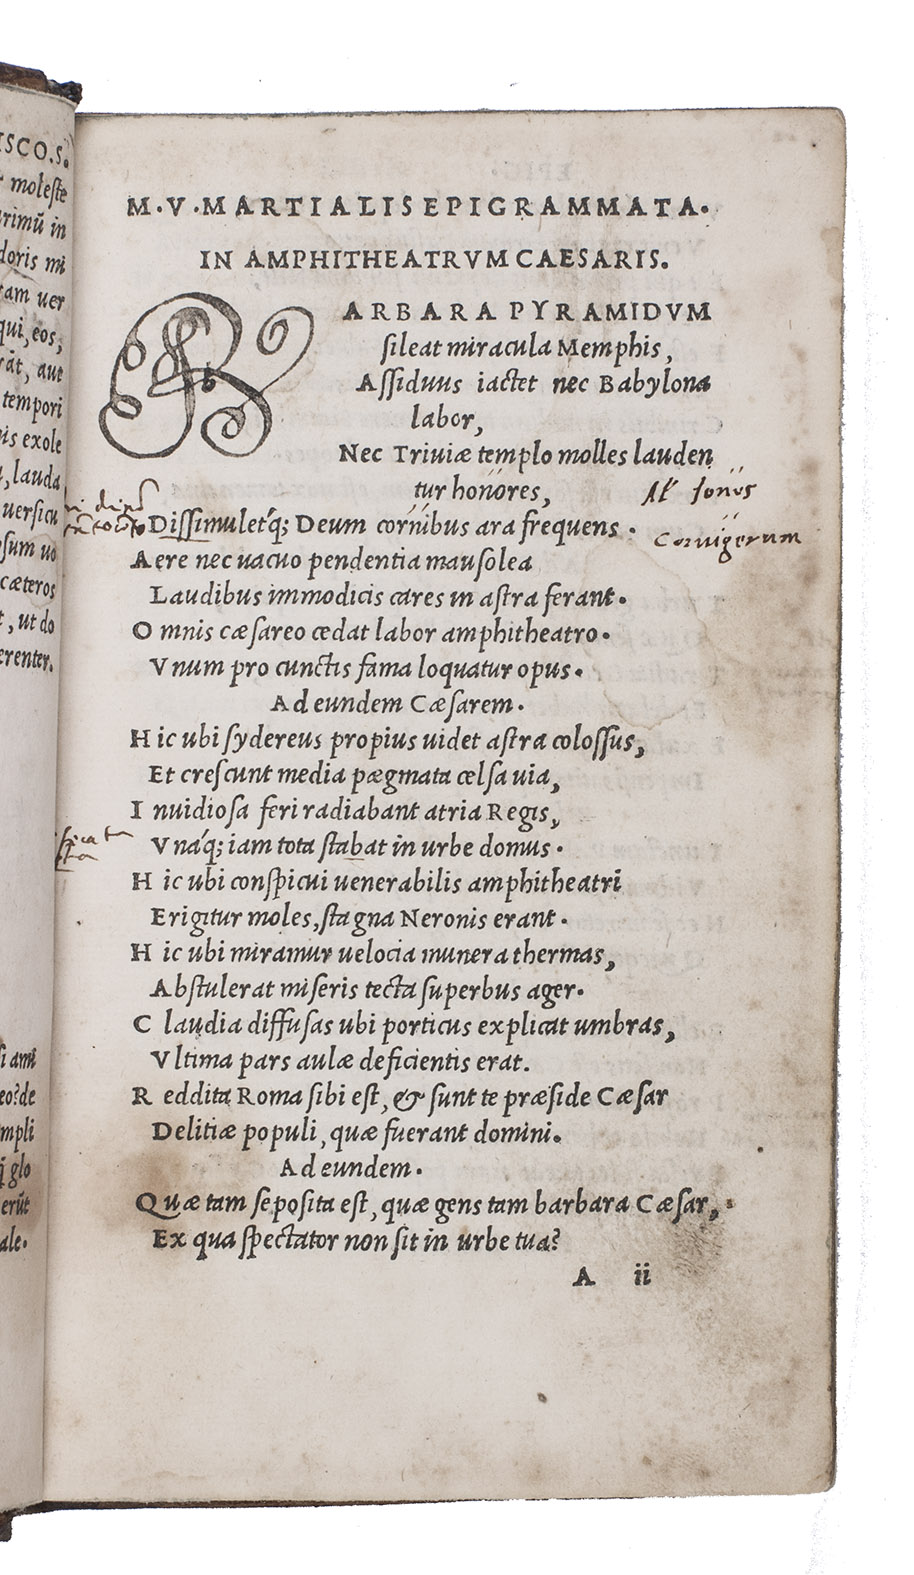 ISCO.S.
moleste
rimū in
doris mi
tam uer
qui, eos,
rāt, aut
tempori
is exole
, lauda
uersicu
sum uo
cæteros
, ut do
erenter.
si ami
eo? de
mpli
q̃ glo
erūt
ale.
M.V.MARTIALIS EPIGRAMMATA.
IN AMPHITHEATRVM CAESARIS.
BARBARA PYRAMIDVM
sileat miracula Memphis,
Assiduus iactet nec Babylona
labor,
Nec Triuiæ templo molles lauden
tur honores,
Al' Jonis
Dissimulet'q; Deum cornibus ara frequens.
Cornigerum
Aere nec uacuo pendentia mausolea
Laudibus immodicis cares in astra ferant.
Omnis cæsareo cedat labor amphitheatro.
Vnum pro cunctis fama loquatur opus.
Ad eundem Cæsarem.
Hic ubi sydereus propius uidet astra colossus,
Et crescunt media pægmata celsa uia,
Inuidiosa feri radiabant atria Regis,
Vna'q; iam tota stabat in urbe domus.
Hic ubi conspicui uenerabilis amphitheatri
Erigitur moles, stagna Neronis erant.
Hic ubi miramur uelocia munera thermas,
Abstulerat miseris tecta superbus ager.
Claudia diffusas ubi porticus explicat umbras,
Vltima pars aulæ deficientis erat.
Reddita Roma sibi est, & sunt te præside Cæsar
Delitiæ populi, quæ fuerant domini.
Ad eundem.
Quæ tam seposita est, quæ gens tam barbara Cæsar,
Ex qua spectator non sit in urbe tua?
A ii